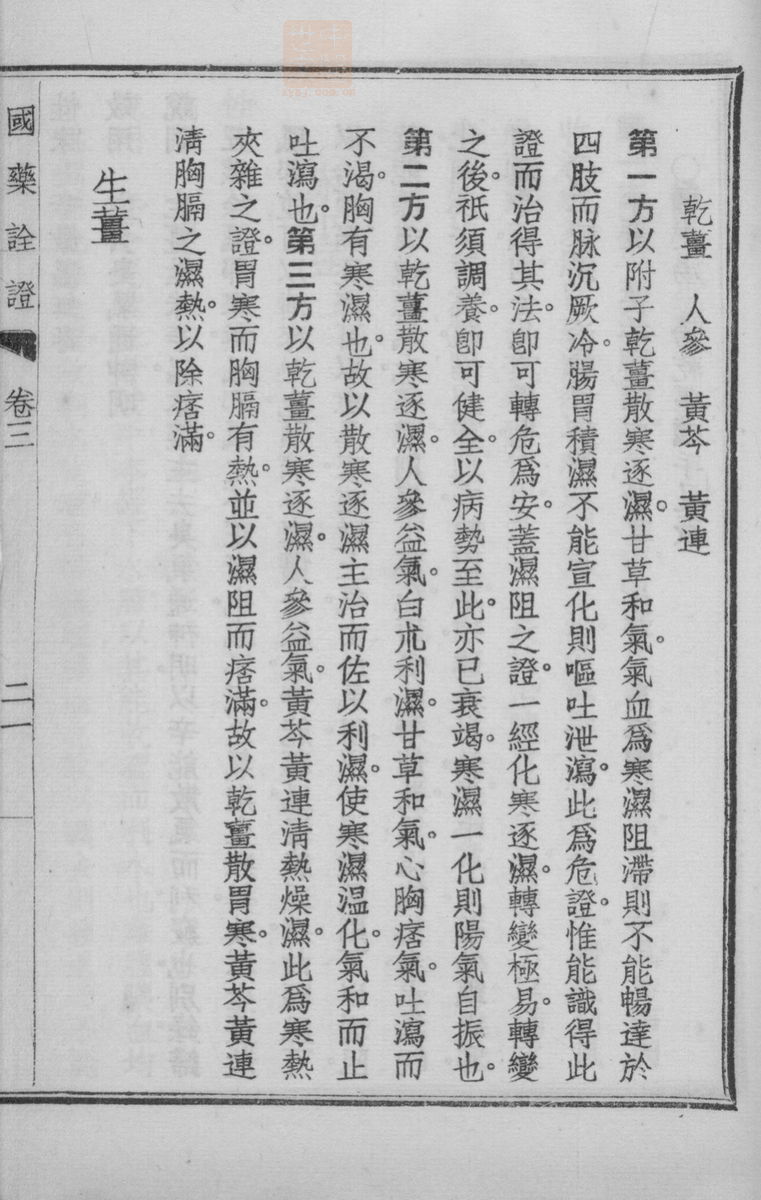 乾薑 人參 黃芩 黃連
第一方以附子乾薑散寒逐濕。甘草和氣。氣血爲寒濕阻滯則不能暢達於
四肢而脉沉厥冷。腸胃積濕不能宣化則嘔吐泄瀉。此爲危證。惟能識得此
證而治得其法。卽可轉危爲安。蓋濕阻之證。一經化寒逐濕。轉變極易。轉變
之後。祇須調養。卽可健全。以病勢至此。亦已衰竭。寒濕一化則陽氣自振也。
第二方以乾薑散寒逐濕。人參益氣。白朮利濕。甘草和氣。心胸痞氣。吐瀉而
不渴。胸有寒濕也。故以散寒逐濕主治而佐以利濕。使寒濕温化。氣和而止
吐瀉也。第三方以乾薑散寒逐濕。人參益氣。黃芩黃連淸熱燥濕。此爲寒熱
夾雜之證。胃寒而胸膈有熱。並以濕阻而痞滿。故以乾薑散胃寒。黃芩黃連
淸胸膈之濕熱。以除痞滿。
生薑
國藥詮證 卷三 二一